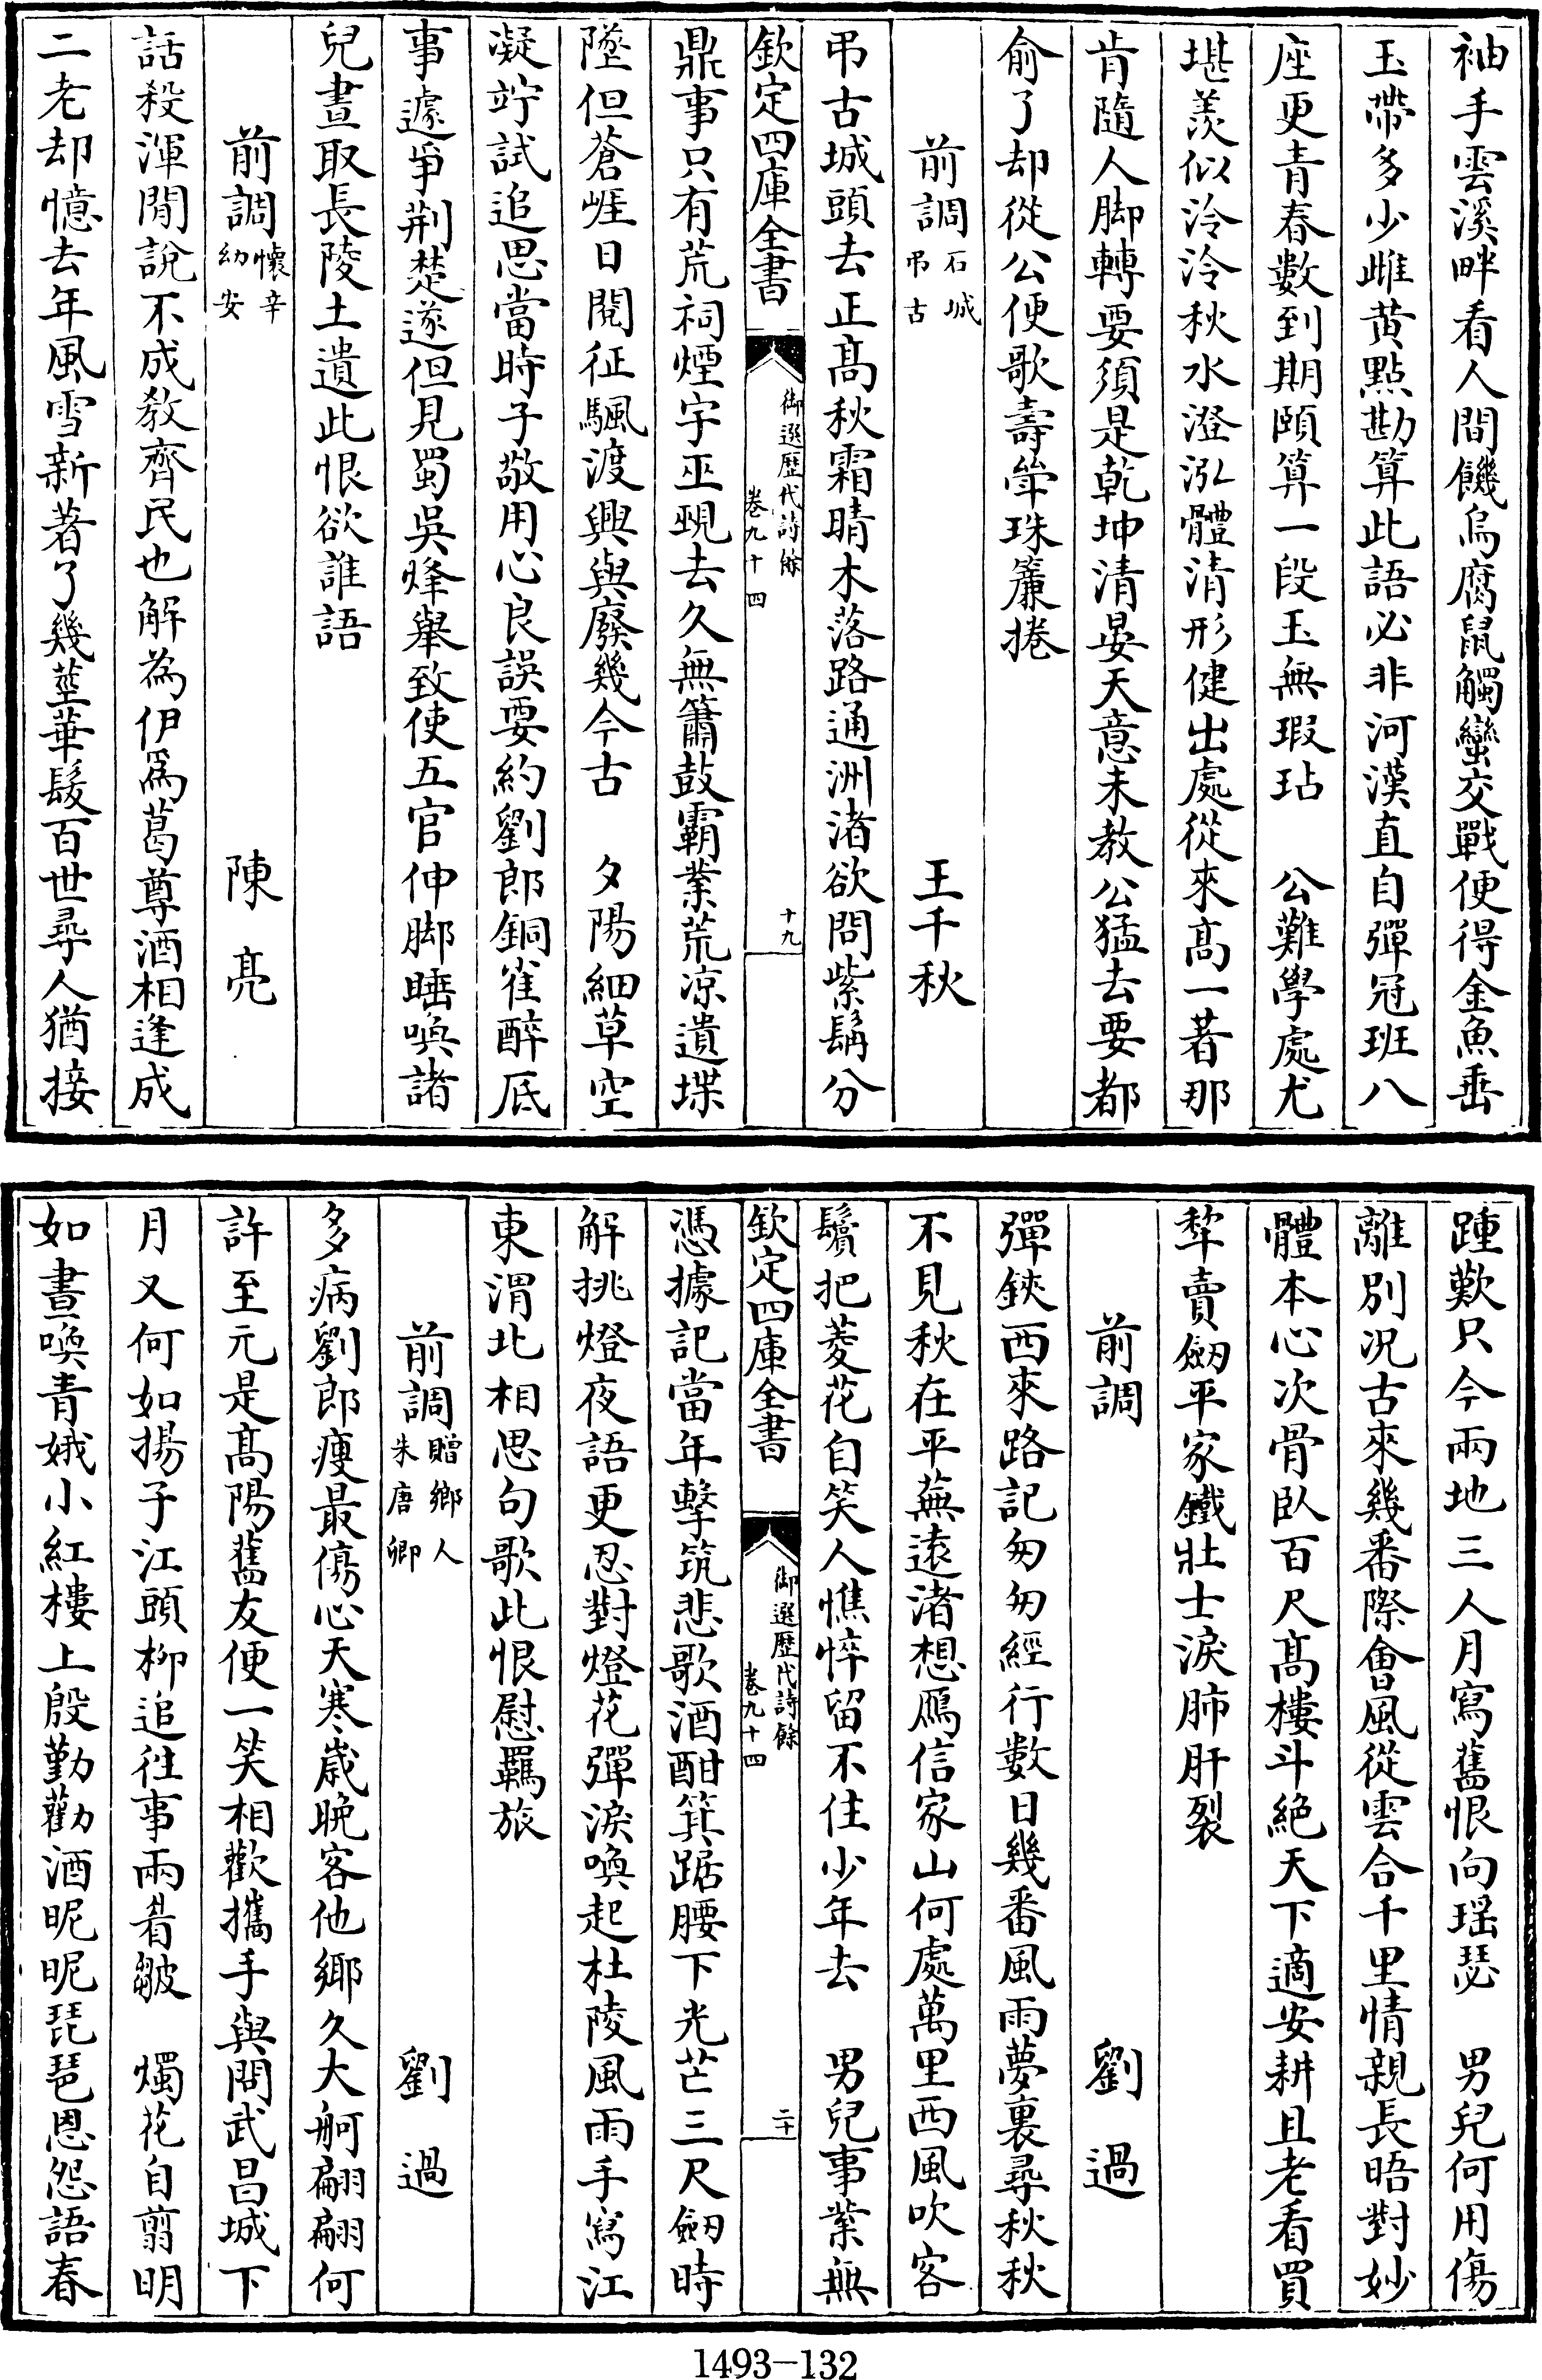 袖手雲溪畔看人間饑烏腐鼠觸蠻交戰便得金魚垂
玉帶多少雌黄點勘算此語必非河漢直自彈冠班八
座更青春數到期頤算一段玉無瑕玷　公難學處尤
堪羨似泠泠秋水澄泓體清形健出處從來髙一著那
肯隨人脚轉要須是乾坤清晏天意未教公猛去要都
俞了却從公便歌壽斝珠簾捲
前調石城弔古　王千秋
弔古城頭去正髙秋霜晴木落路通洲渚欲問紫髯分
欽定四庫全書　御選歴代詩餘　卷九十四　十九
鼎事只有荒祠煙宇巫覡去久無簫鼓霸業荒凉遺堞
墜但蒼崕日閲征颿渡興與廢幾今古　夕陽細草空
凝竚試追思當時子敬用心良誤要約劉郎銅雀醉底
事遽爭荆楚遂但見蜀吳烽舉致使五官伸脚睡喚諸
兒晝取長陵土遺此恨欲誰語
前調懷辛幼安　陳亮
話殺渾閒說不成教齊民也解為伊爲葛尊酒相逢成
二老却憶去年風雪新著了幾莖華髮百世尋人猶接
踵歎只今兩地三人月寫舊恨向瑶瑟　男兒何用傷
離別况古來幾番際會風從雲合千里情親長晤對妙
體本心次骨臥百尺髙樓斗絶天下適安耕且老看買
犂賣劒平家鐵壯士淚肺肝裂
前調　劉過
彈鋏西來路記匆匆經行數日幾番風雨夢裏尋秋秋
不見秋在平蕪逺渚想鴈信家山何處萬里西風吹客
鬢把菱花自笑人憔悴留不住少年去　男兒事業無
欽定四庫全書　御選歴代詩餘　卷九十四　二十
憑據記當年擊筑悲歌酒酣箕踞腰下光芒三尺劒時
解挑燈夜語更忍對燈花彈淚喚起杜陵風雨手寫江
東渭北相思句歌此恨慰羈旅
前調贈鄉人朱唐卿　劉過
多病劉郎瘦最傷心天寒嵗晩客他鄉久大舸翩翩何
許至元是髙陽舊友便一笑相歡攜手與問武昌城下
月又何如揚子江頭柳追徃事兩眉皺　燭花自翦明
如晝喚青娥小紅樓上殷勤勸酒昵昵琵琶恩怨語春
1493—132